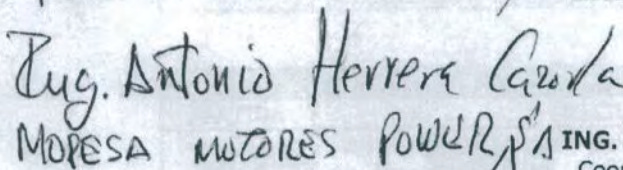 Ing. Antonio Herrera Cazorla
MOPESA MOTORES POWER, SA ING.
Coor